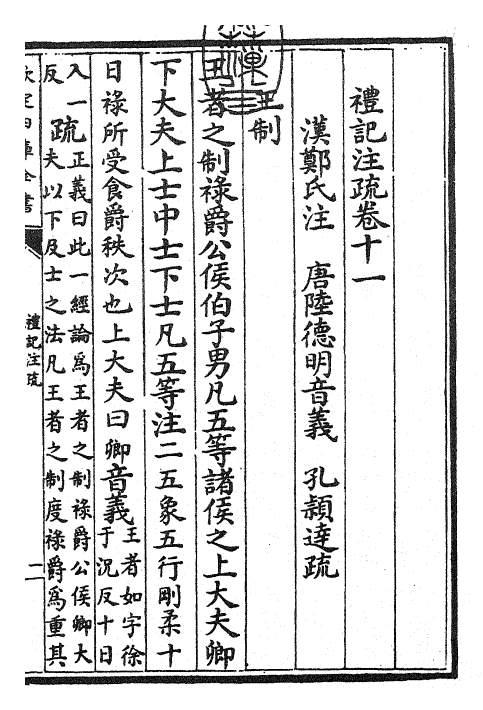 禮記注疏卷十一
漢鄭氏注　唐陸德明音義　孔穎達疏
王制
王者之制祿爵公侯伯子男凡五等諸侯之上大夫卿
下大夫上士中士下士凡五等注二五象五行剛柔十
日祿所受食爵秩次也上大夫曰卿音義王者如字徐
于況反十日
入一
反疏正義曰此一經論為王者之制祿爵公侯卿大
夫以下及士之法凡王者之制度祿爵為重其
禮記注疏